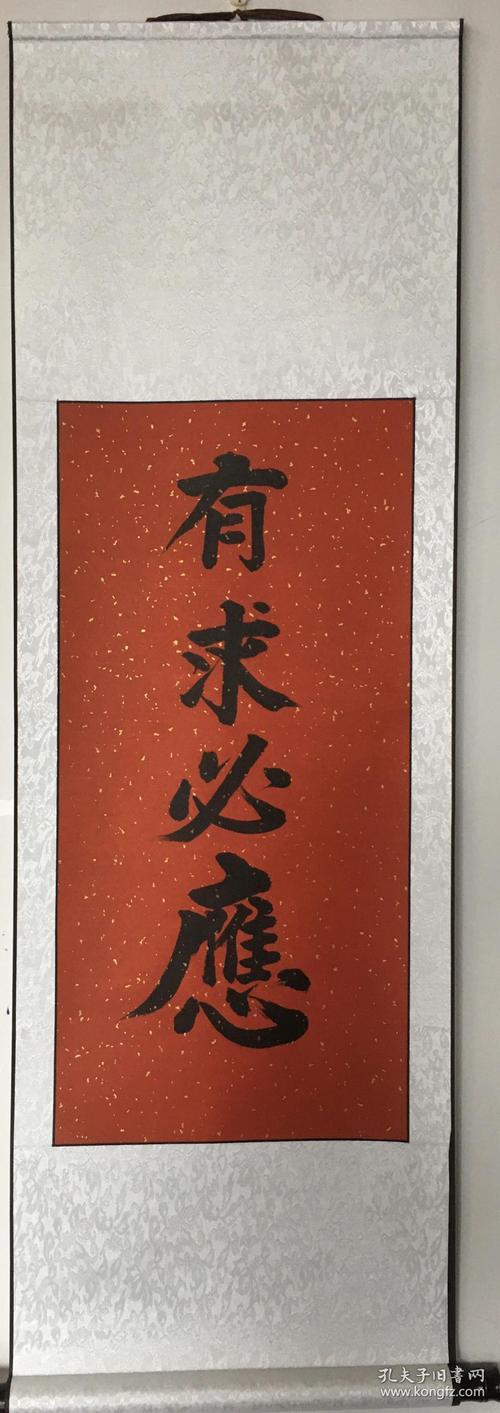 有求必應
孔夫子旧書网
www.kongfz.com